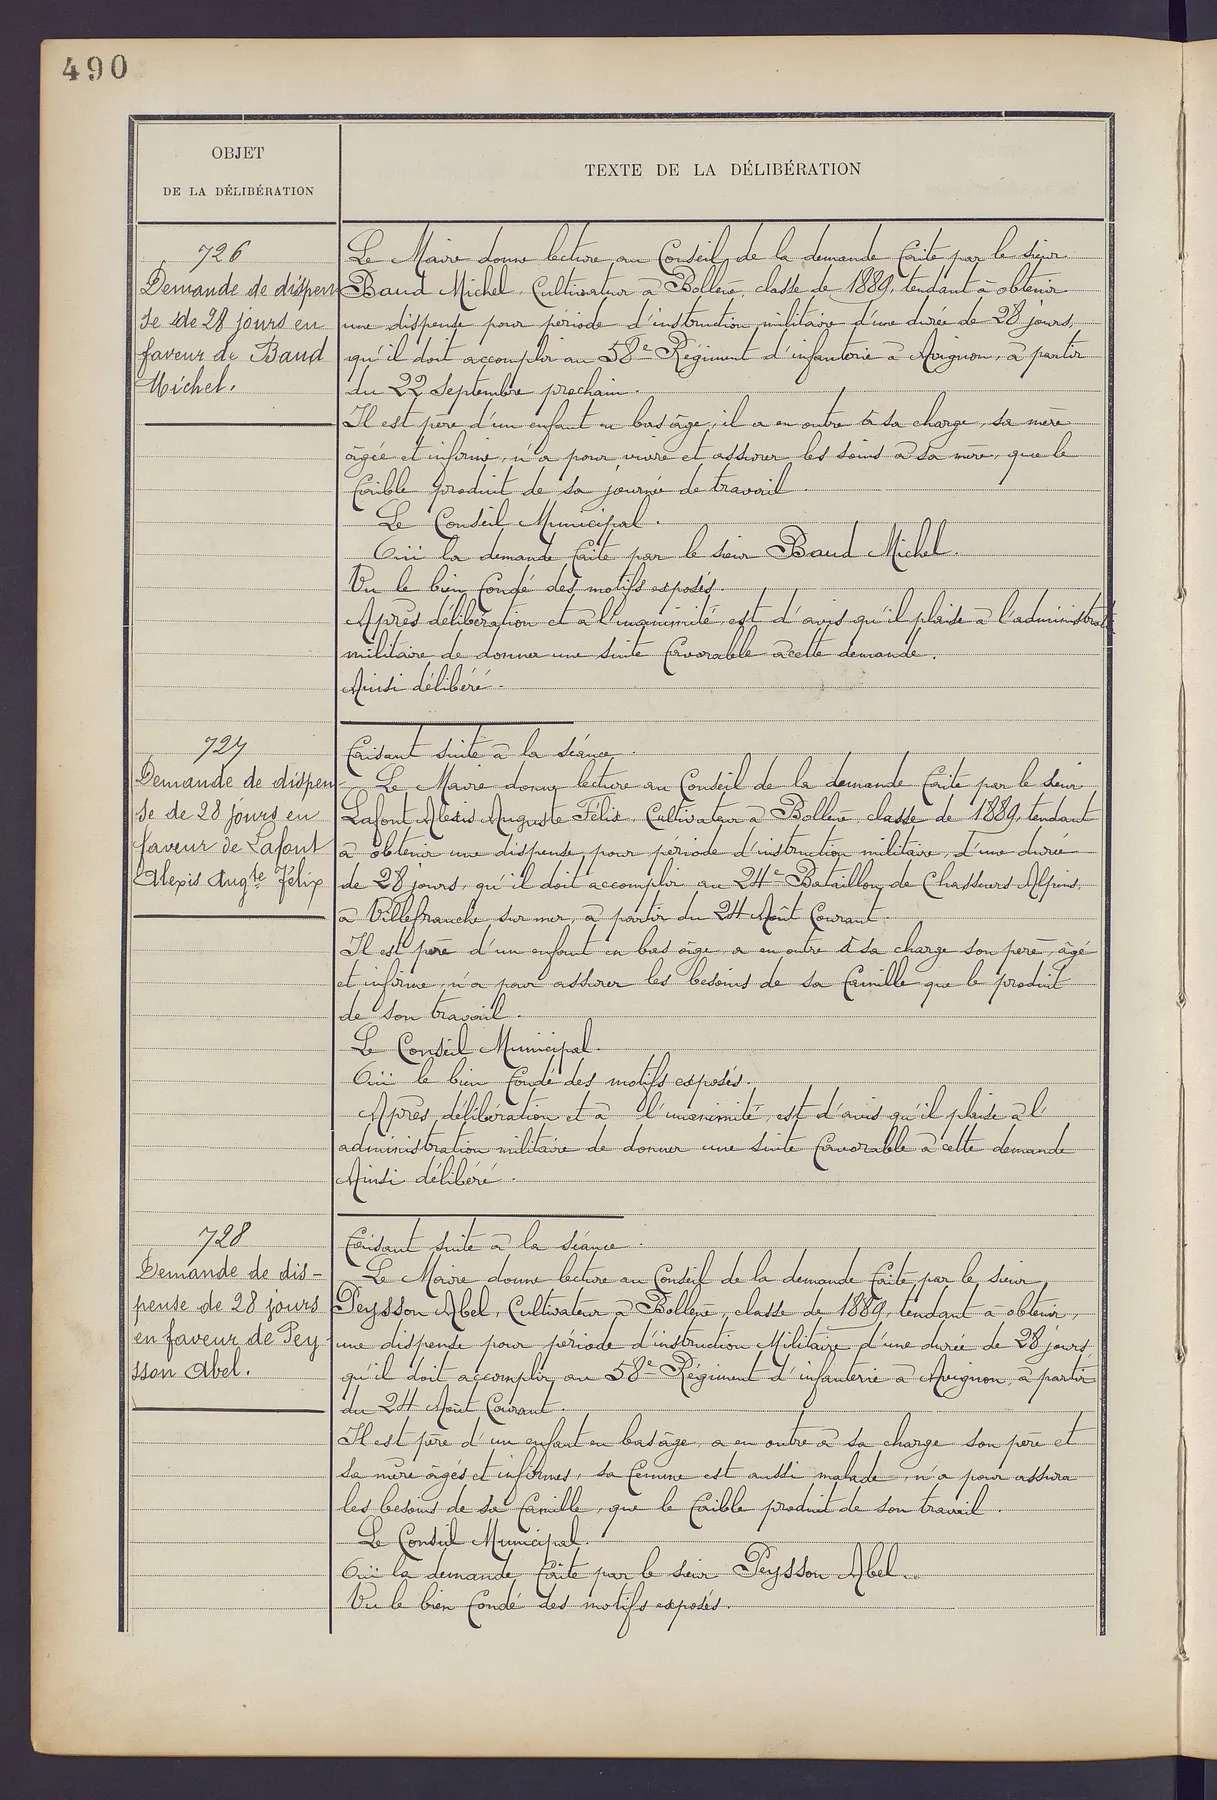 490
OBJET
DE LA DÉLIBÉRATION
TEXTE DE LA DÉLIBÉRATION
726
Demande de dispen
se de 28 jours en
faveur de Baud
Michel.
Le Maire donne lecture au Conseil de la demande faite par le sieur
Baud Michel, Cultivateur à Bollène, classe de 1889, tendant à obtenir
une dispense pour période d'instruction militaire d'une durée de 28 jours,
qu'il doit accomplir au 58e Régiment d'infanterie à Avignon, à partir
du 22 Septembre prochain.
Il est père d'un enfant en bas âge, il a en outre à sa charge, sa mère
âgée et infirme, n'a pour vivre et assurer les soins à sa mère, que le
faible produit de sa journée de travail.
Le Conseil Municipal.
Ouï la demande faite par le sieur Baud Michel.
Vu le bien fondé des motifs exposés.
Après délibération et à l'unanimité, est d'avis qu'il plaise à l'administrat
militaire de donner une suite favorable à cette demande.
Ainsi délibéré.
727
Demande de dispen
se de 28 jours en
faveur de Lafont
Alexis Augte Félix
Faisant suite à la séance.
Le Maire donne lecture au Conseil de la demande faite par le sieur
Lafont Alexis Auguste Félix, Cultivateur à Bollène, classe de 1889, tendant
à obtenir une dispense pour période d'instruction militaire, d'une durée
de 28 jours, qu'il doit accomplir au 24e Bataillon de Chasseurs Alpins,
à Villefranche sur mer, à partir du 24 Août Courant.
Il est père d'un enfant en bas âge, a en outre à sa charge son père, âgé
et infirme, n'a pour assurer les besoins de sa famille que le produit
de son travail.
Le Conseil Municipal.
Ouï le bien fondé des motifs exposés.
Après délibération et à l'unanimité, est d'avis qu'il plaise à l'
administration militaire de donner une suite favorable à cette demande
Ainsi délibéré.
728
Demande de dis-
pense de 28 jours
en faveur de Pey
sson Abel.
Faisant suite à la séance.
Le Maire donne lecture au Conseil de la demande faite par le sieur
Peysson Abel, Cultivateur à Bollène, classe de 1889, tendant à obtenir,
une dispense pour période d'instruction Militaire d'une durée de 28 jours
qu'il doit accomplir au 58e Régiment d'infanterie à Avignon, à partir
du 24 Août Courant.
Il est père d'un enfant en bas âge, a en outre à sa charge son père et
sa mère âgés et infirmes, sa femme est aussi malade, n'a pour assurer
les besoins de sa famille, que le faible produit de son travail.
Le Conseil Municipal.
Ouï la demande faite par le sieur Peysson Abel.
Vu le bien fondé des motifs exposés.